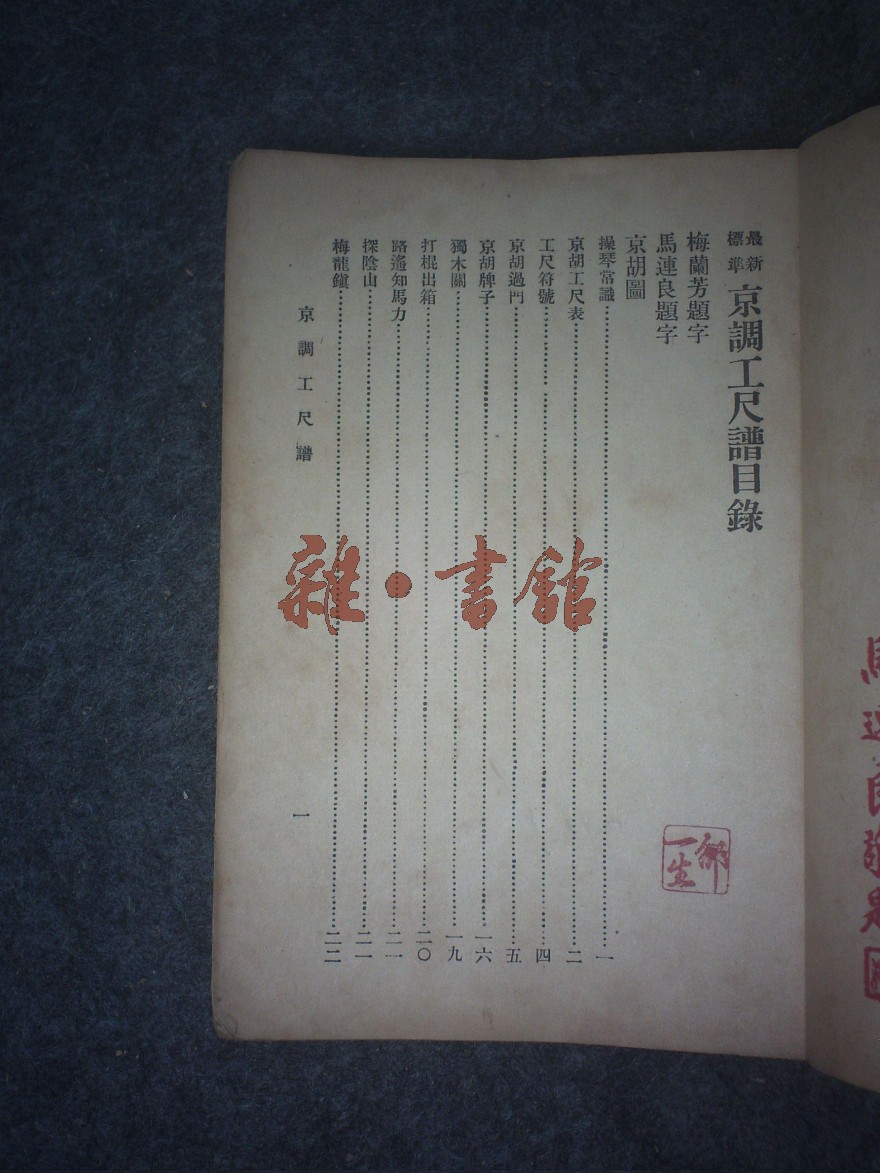 最新標準 京調工尺譜目錄
梅蘭芳題字
馬連良題字
京胡圖
操琴常識 一
京胡工尺表 二
工尺符號 四
京胡過門 五
京胡牌子 一六
獨木關 一九
打棍出箱 二〇
路遙知馬力 二一
探陰山 二一
梅龍鎮 二二
京調工尺譜
一
雜·書館
一生